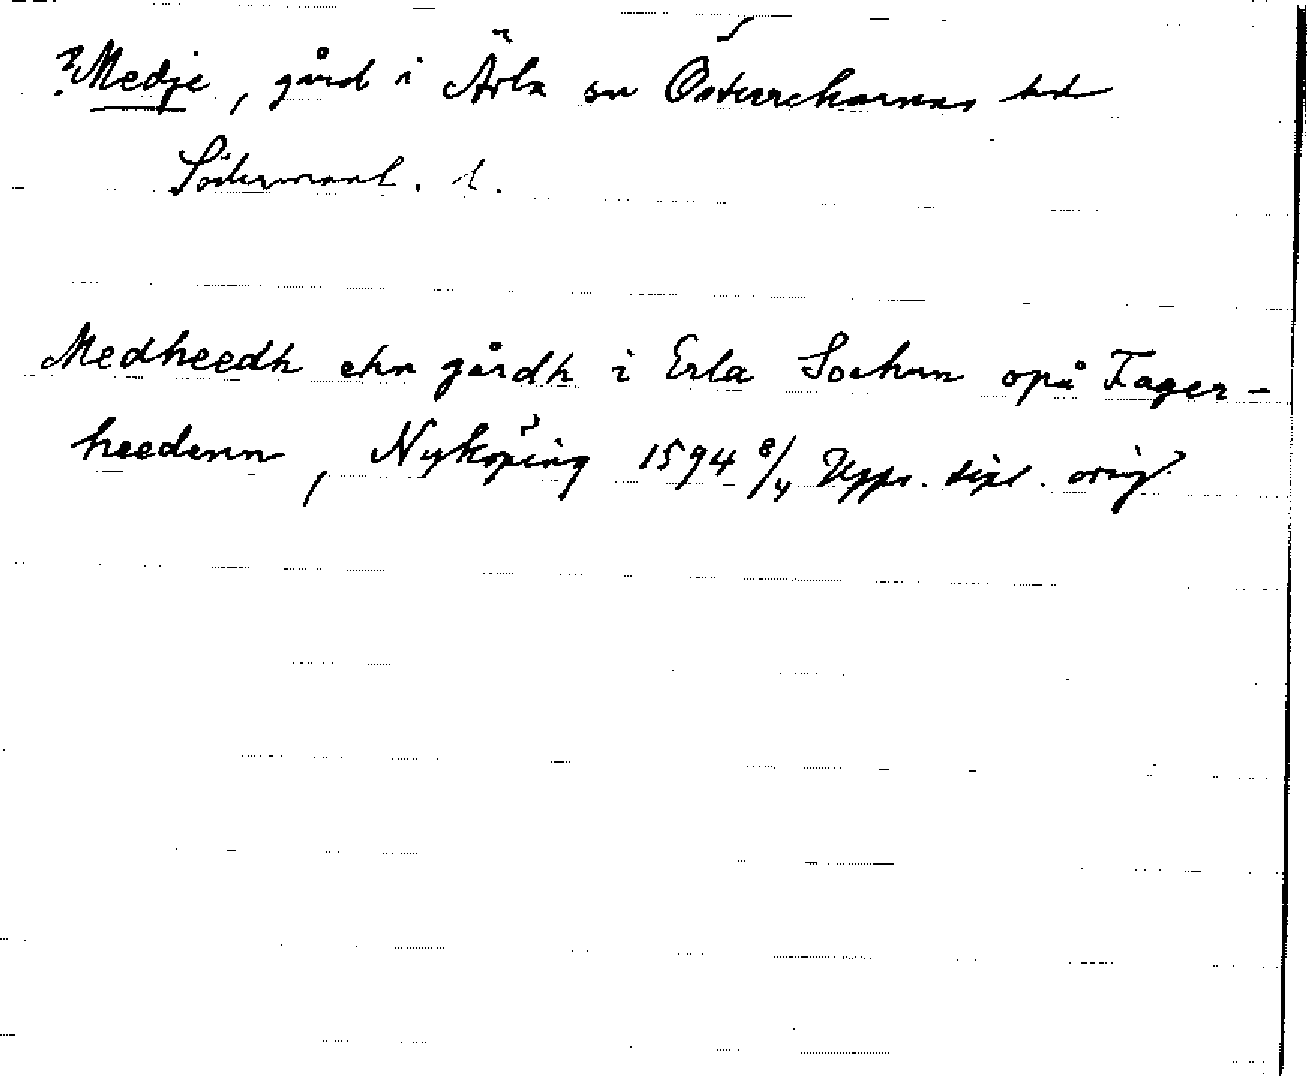 ?Medje, gård i Ärla sn Österrekarnes hd
Södermanl. l.
Medheedh ehn gårdh i Erla Sochnn opå Fager-
heedenn, Nyköping 1594 8/4 Upps. dipl. orig